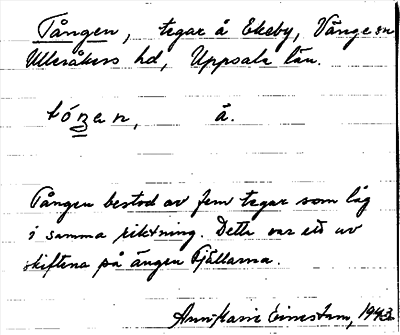 Tången, tegar å Ekeby, Vänge sn
Ulleråkers hd, Uppsala län.
tóŋen, å.
Tången bestod av fem tegar som låg
i samma riktning. Detta var ett av
skiftena på ängen Fjällarna.
Ann-Marie 1943